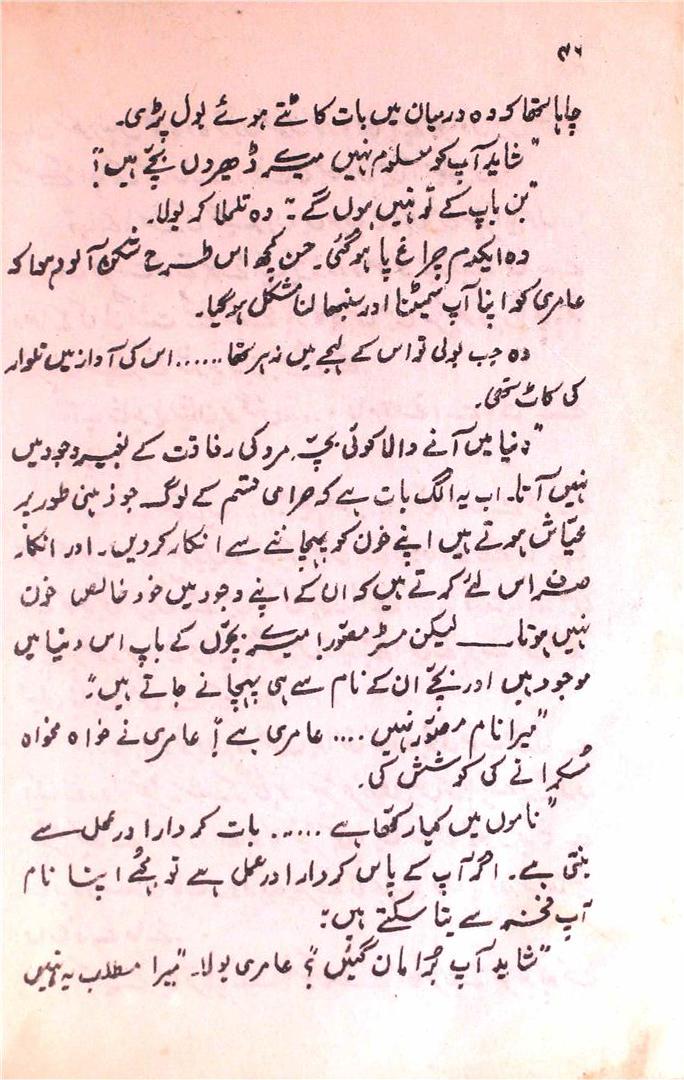 ۴۶
چاہا تھا کہ وہ درمیان میں بات کاٹتے ہوئے بول پڑی۔
"شاید آپ کو معلوم نہیں میرے ڈھیروں بچّے ہیں!"
"بن باپ کے تو نہیں ہوں گے" وہ تلملا کر بولا۔
وہ ایکدم چراغ پا ہوگئی۔ حسن کچھ اس طرح شکن آلود ہوا کہ
عامری کو اپنا آپ سمیٹنا اور سنبھالنا مشکل ہوگیا۔
وہ جب بولی تو اس کے لہجے میں زہر تھا ...... اس کی آواز میں تلوار
کی کاٹ تھی۔
"دنیا میں آنے والا کوئی بچّہ مرد کی رفاقت کے بغیر وجود میں
نہیں آتا۔ اب یہ الگ بات ہے کہ حرامی قسم کے لوگ جو ذہنی طور پر
عیّاش ہوتے ہیں اپنے خون کو پہچاننے سے انکار کردیں۔ اور انکار
صرف اس لئے کرتے ہیں کہ ان کے اپنے وجود میں خود خالص خون
نہیں ہوتا ـــــ لیکن مسٹر مصّور! میرے بچّوں کے باپ اس دنیا میں
موجود ہیں اور بچّے ان کے نام سے ہی پہچانے جاتے ہیں"
"میرا نام مصّور نہیں .... عامری ہے!" عامری نے خواہ مخواہ
مُسکرانے کی کوشش کی۔
"ناموں میں کیا رکھا ہے ...... بات کردار اور عمل سے
بنتی ہے۔ اگر آپ کے پاس کردار اور عمل ہے تو مجھے اپنا نام
آپ فخر سے بتا سکتے ہیں"
"شاید آپ بُرا مان گئیں؟" عامری بولا۔ "میرا مطلب یہ نہیں